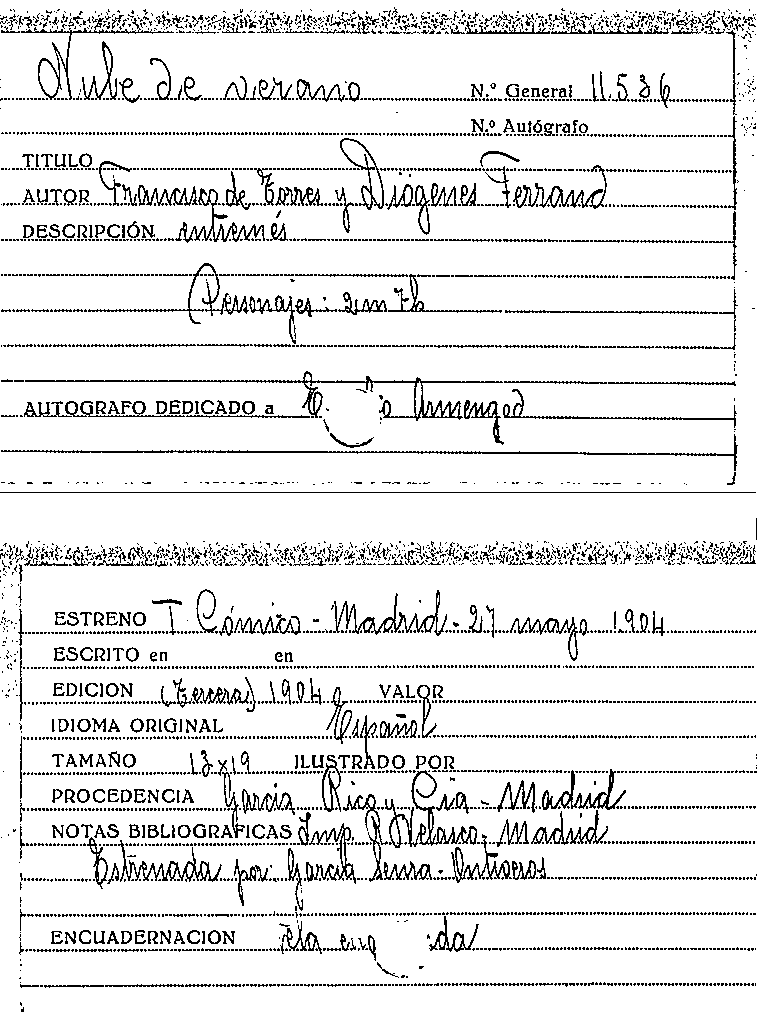 Nube de verano N.º General 11.536
N.º Autógrafo
TITULO
AUTOR Francisco de Torres y Diógenes Ferrand
DESCRIPCIÓN entremés
Personajes: 2m 7h
AUTOGRAFO DEDICADO a Armengod
ESTRENO T Cómico - Madrid - 27 mayo 1904
ESCRITO en en
EDICION (Tercera) 1904 VALOR
IDIOMA ORIGINAL Español
TAMAÑO 13x19 ILUSTRADO POR
PROCEDENCIA García Rico y Cia - Madrid
NOTAS BIBLIOGRAFICAS Imp. R Velasco, Madrid
Estrenada por: García Senra - Ontiveros
ENCUADERNACION tela